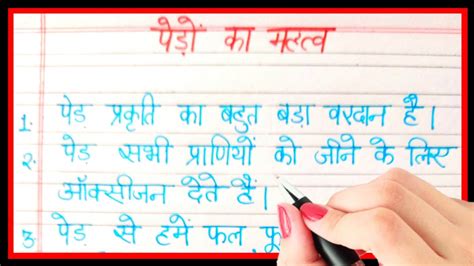 पेड़ों का महत्व
1. पेड़ प्रकृति का बहुत बड़ा वरदान है।
2. पेड़ सभी प्राणियों को जीने के लिए
ऑक्सीजन देते हैं।
3 पेड़ से हमें फल